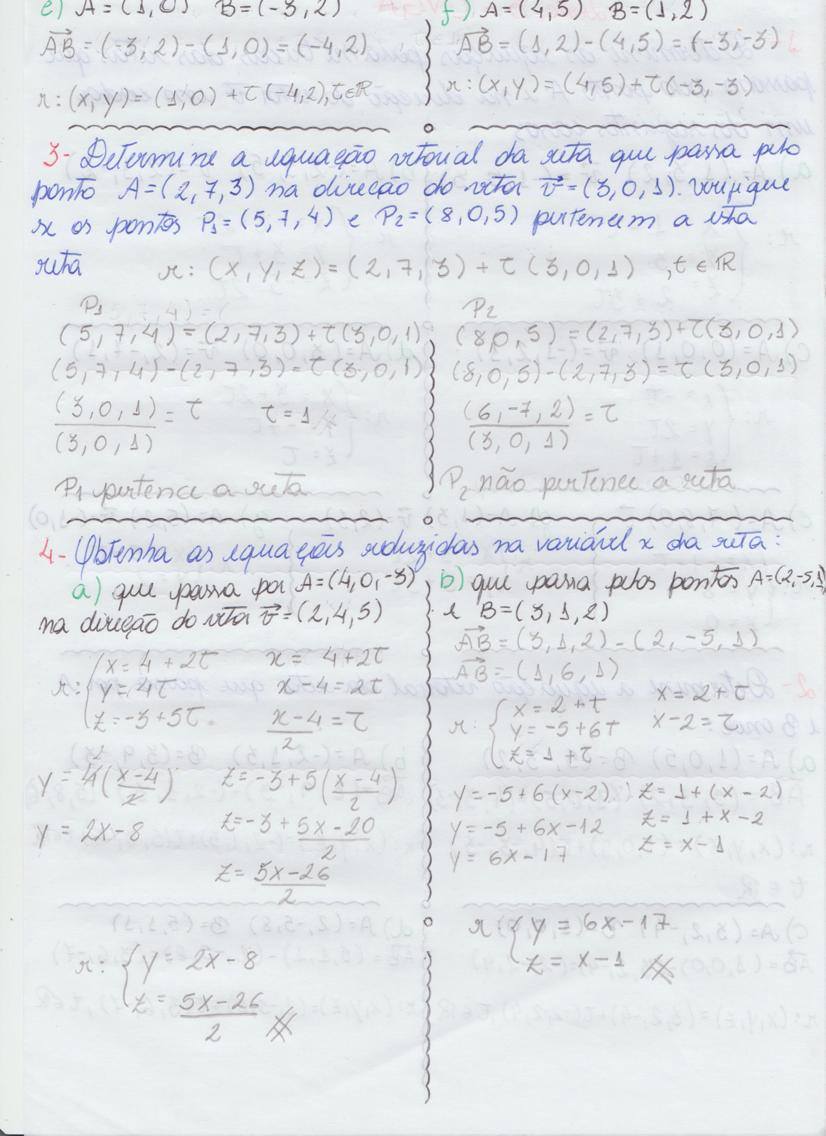 e) A = (1,0) B = (-3,2)
AB = (-3,2)-(1,0) = (-4,2)
r: (x,y) = (1,0) + t(-4,2), t∈ℝ
f) A = (4,5) B = (1,2)
AB = (1,2)-(4,5) = (-3,-3)
r: (x,y) = (4,5) + t(-3,-3)
3- Determine a equação vetorial da reta que passa pelo
ponto A = (2,7,3) na direção do vetor v = (3,0,1). Verifique
se os pontos P1 = (5,7,4) e P2 = (8,0,5) pertencem a esta
reta r: (x,y,z) = (2,7,3) + t(3,0,1), t∈ℝ
P1
(5,7,4) = (2,7,3) + t(3,0,1)
(5,7,4)-(2,7,3) = t(3,0,1)
(3,0,1)/(3,0,1) = t t = 1
P1 pertence a reta
P2
(8,0,5) = (2,7,3) + t(3,0,1)
(8,0,5)-(2,7,3) = t(3,0,1)
(6,-7,2)/(3,0,1) = t
P2 não pertence a reta
4- Obtenha as equações reduzidas na variável x da reta:
a) que passa por A = (4,0,-3)
na direção do vetor v = (2,4,5)
r: { x = 4 + 2t x = 4 + 2t
y = 4t x-4 = 2t
z = -3 + 5t (x-4)/2 = t
y = 4((x-4)/2) z = -3 + 5((x-4)/2)
y = 2x-8 z = -3 + (5x-20)/2
z = (5x-26)/2
r: { y = 2x-8
z = (5x-26)/2
b) que passa pelos pontos A = (2,-5,1)
e B = (3,1,2)
AB = (3,1,2)-(2,-5,1)
AB = (1,6,1)
r: { x = 2 + t x = 2 + t
y = -5 + 6t x-2 = t
z = 1 + t
y = -5 + 6(x-2) z = 1 + (x-2)
y = -5 + 6x-12 z = 1 + x-2
y = 6x-17 z = x-1
r: { y = 6x-17
z = x-1